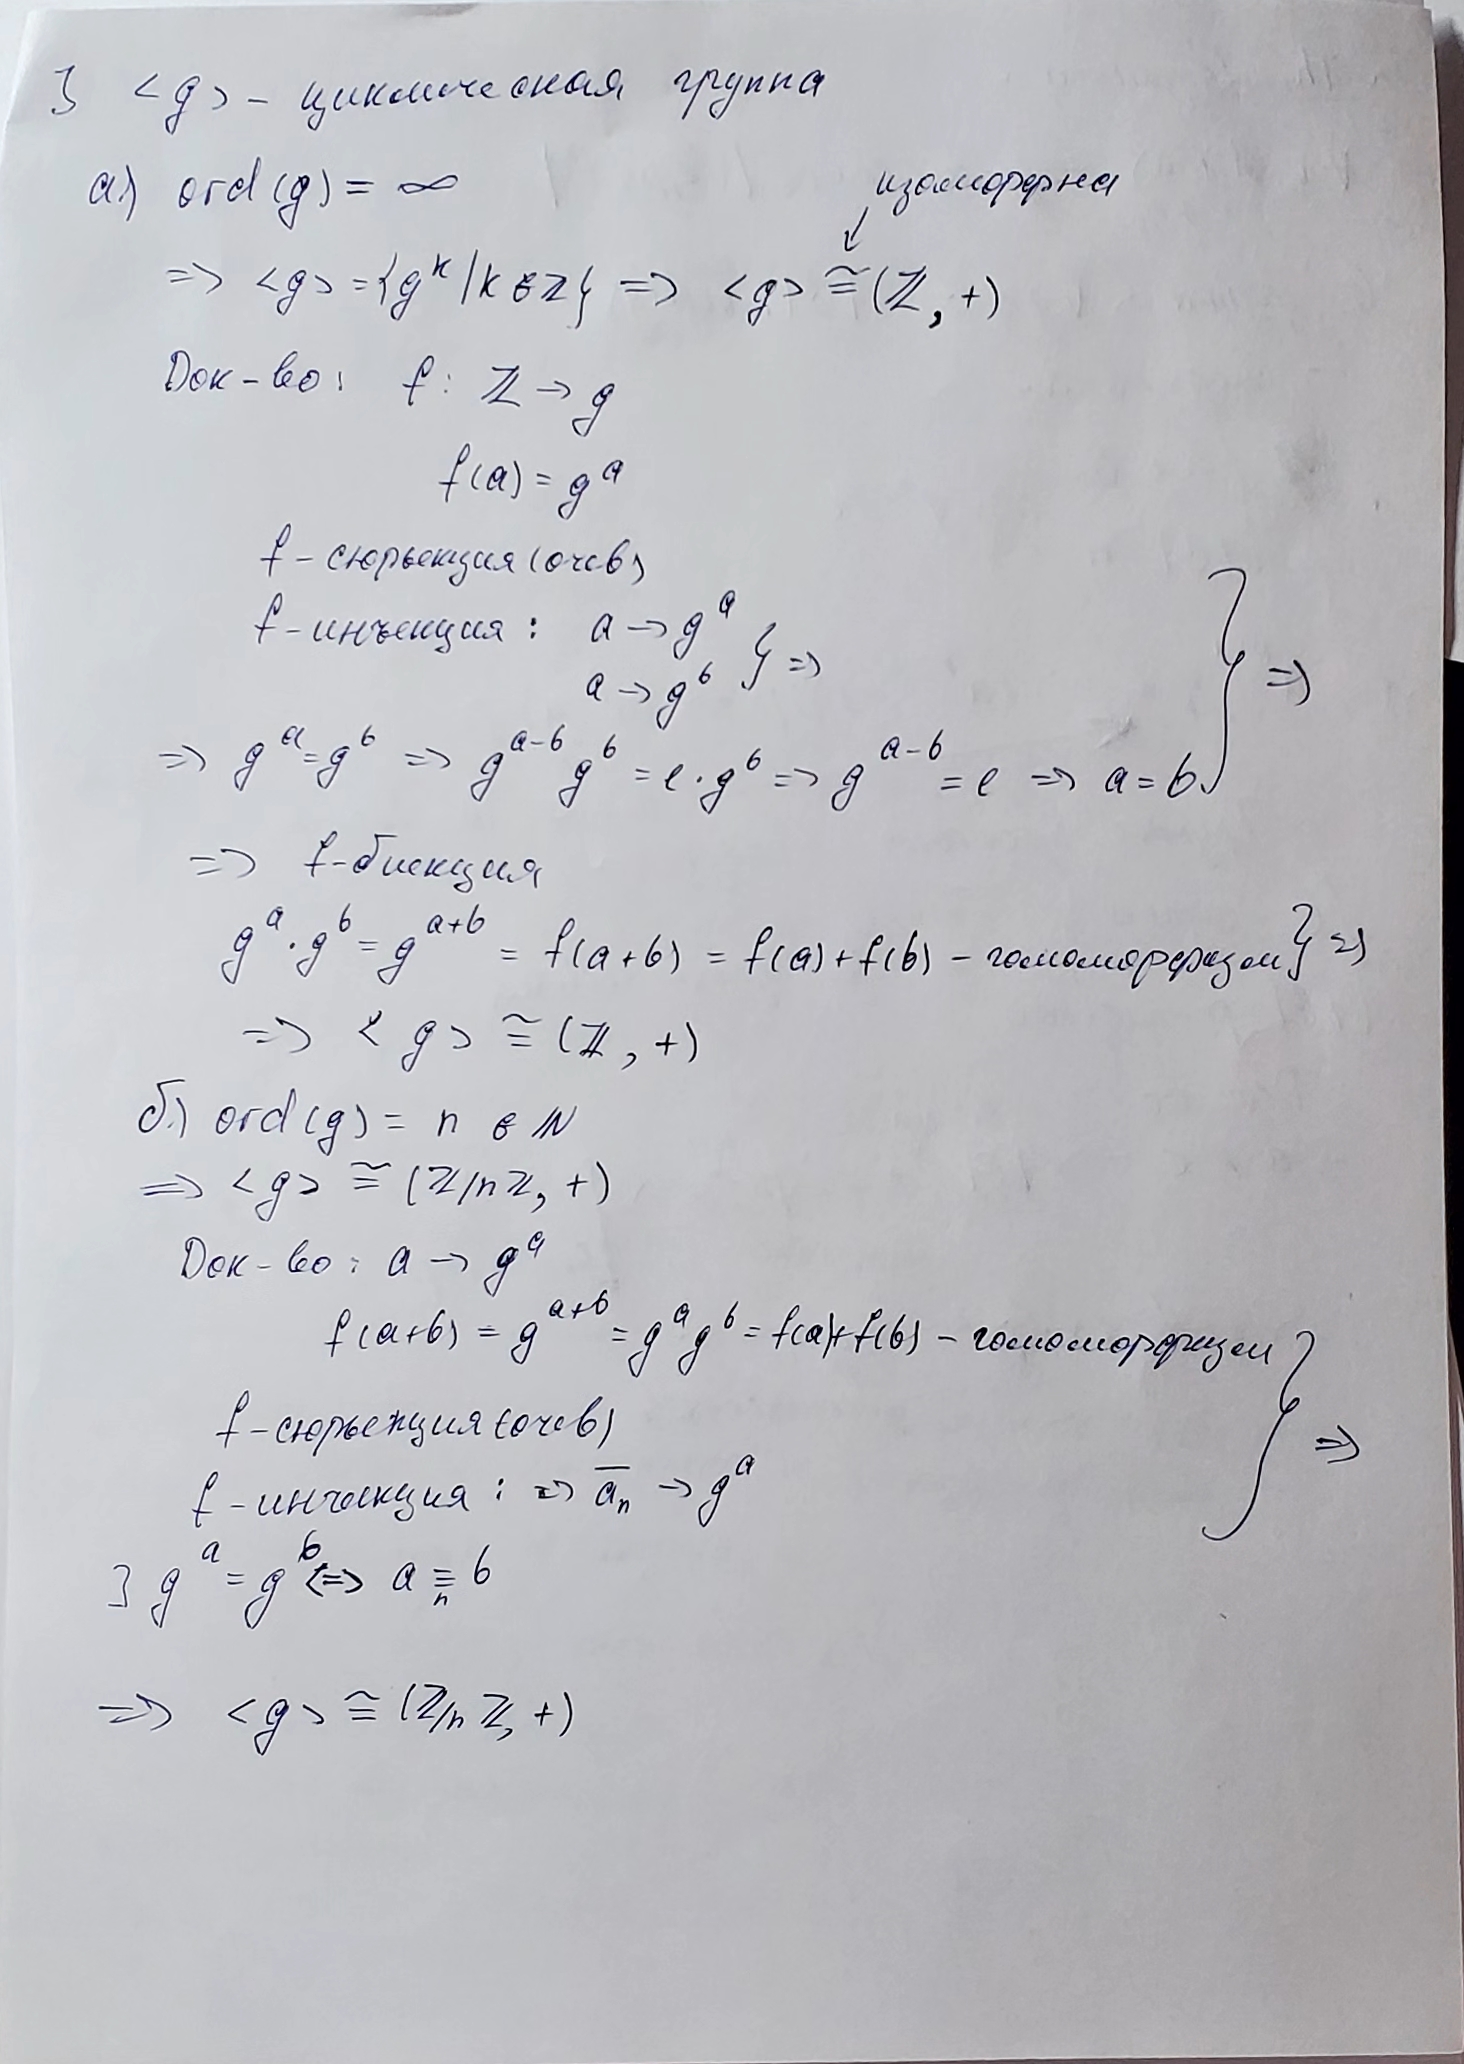 ] <g> – циклическая группа
а) ord(g) = ∞
изоморфна
↙
=> <g> = {g^k | k ∈ ℤ} => <g> ≅ (ℤ, +)
Док-во: f: ℤ → g
f(a) = g^a
f – сюръекция (очев)
f – инъекция: a → g^a
a → g^b } =>
=> g^a = g^b => g^(a-b) g^b = e · g^b => g^(a-b) = e => a = b } =>
=> f – биекция
g^a · g^b = g^(a+b) = f(a+b) = f(a) + f(b) – гомоморфизм } =>
=> <g> ≅ (ℤ, +)
б) ord(g) = n ∈ ℕ
=> <g> ≅ (ℤ/nℤ, +)
Док-во: a → g^a
f(a+b) = g^(a+b) = g^a g^b = f(a) + f(b) – гомоморфизм
f – сюръекция (очев) } =>
f – инъекция: => a̅_n → g^a
] g^a = g^b <=> a ≡_n b
=> <g> ≅ (ℤ/nℤ, +)